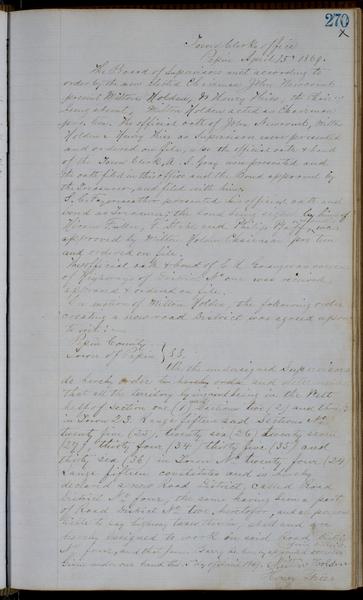 270
Town Clerks office
Pepin April 15th 1869.
The Board of Supervisors met according to
order by the new Elected Chairman John Newcomb,
present Milton Holden, & Henry Fries, the Chair
being absent, Milton Holden acted as Chairman
pro. tem. The official oath of John Newcomb, Milton
Holden & Henry Fries as Supervisors were presented
and ordered on file, also the official oath & bond
of the Town Clerk, A. S. Gray was presented and
the oath filed in this office and the Bond approved by
the Treasurer, and filed with him,
presented his official oath and
bond as Treasurer, the bond being signed by him &
Fuller, and Philip Pfaff, was
approved by Milton Holden Chairman pro tem
and ordered on file.
The official oath & bond of as overseer
of highways of District No one was received,
approved & ordered on file.
On motion of Milton Holden, the following order
creating a new road District was agreed upon
to wit:
Pepin County
Town of Pepin } SS.
We the undersigned Supervisors
do hereby order and determine
that all the territory being in the West
half of section one (1) and Sections two (2) and three (3)
in Town 23. Range fifteen and Sections No
twenty five (25), twenty six (26) twenty seven
(27) thirty four (34) thirty five (35) and
thirty six (36) in Town No twenty four (24)
Range fifteen constitute and is hereby
declared a new Road District, called Road
District No four, the same having been a part
of Road District No two, heretofore, and all persons
liable to pay highway taxes therein, shall and are
hereby assigned to work on said Road District
No four, and that
Given under our hand this day of April 1869. Milton Holden
Henry Fries